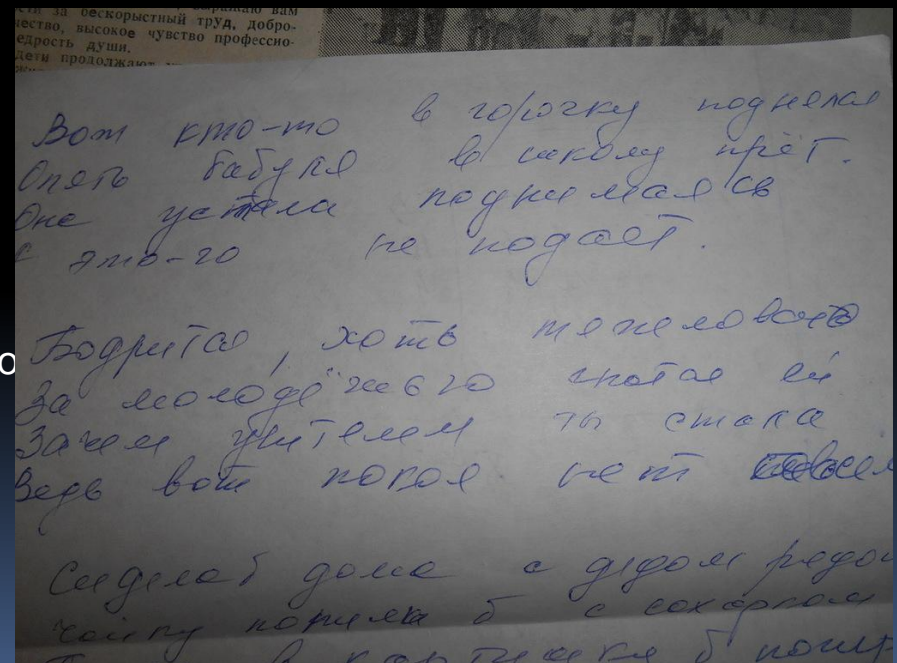 выражаю вам
за бескорыстный труд, добро-
чество, высокое чувство профессио-
едрость души.
дети продолжают
Вот кто-то в горочку поднялся
Опять бабуля в школу прёт.
Она устала поднимаясь
этого-го не подаёт.
Бодрится, хоть тяжеловато
За молодёжью гнаться ей
Зачем учителем ты стала
Ведь вот покоя нет совсем
Сидела б дома с дедом рядом
чайку попила б с сахарком
б